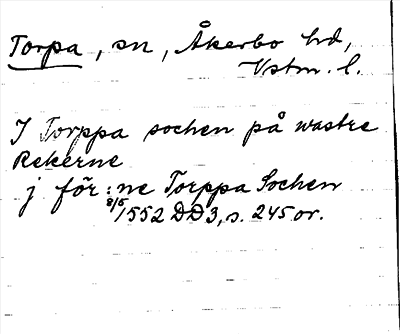 Torpa, sn, Åkerbo hd,
Vstm. l.
I Torppa sochen på wastre
Rekerne
j för:ne Torppa Sochen
8/5 1552 DD3, s. 245 or.